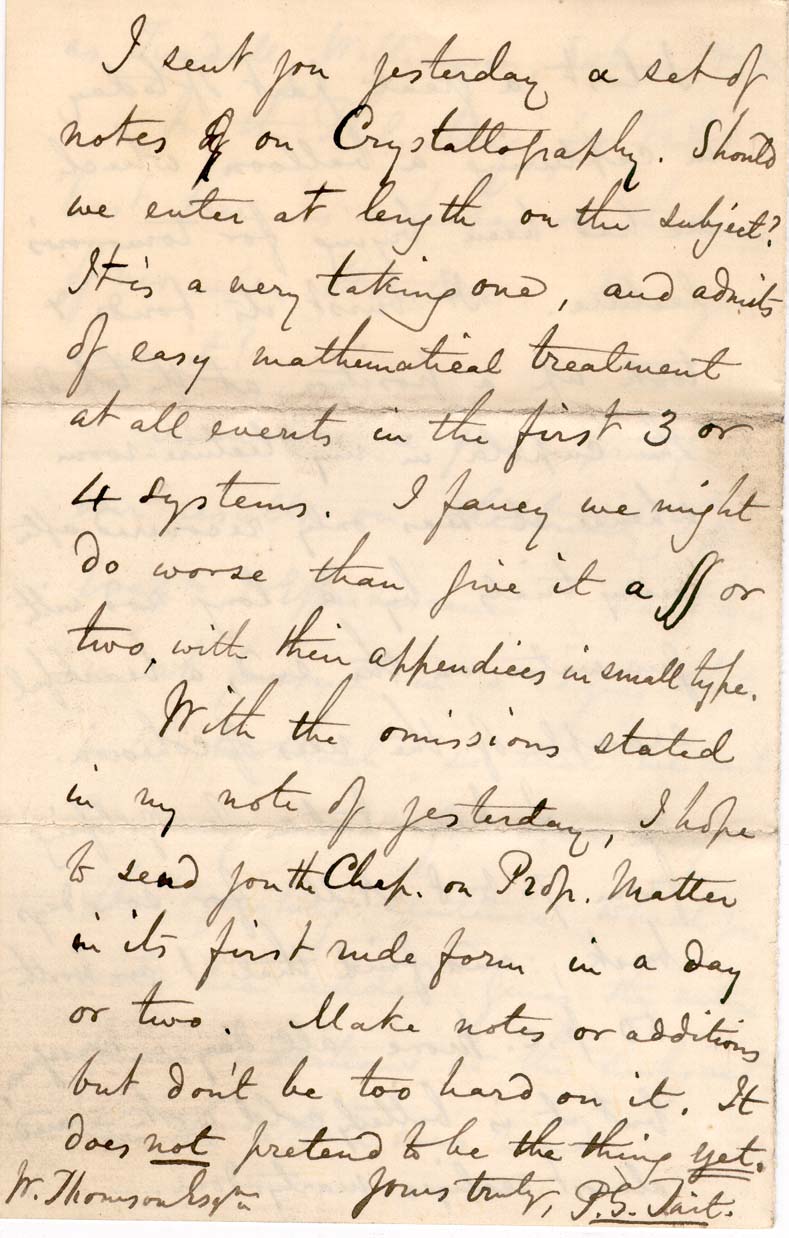 I sent you yesterday a set of
notes on Crystallography. Should
we enter at length on the subject?
It is a very taking one, and admits
of easy mathematical treatment
at all events in the first 3 or
4 systems. I fancy we might
do worse than give it a § or
two, with their appendices in small type.
With the omissions stated
in my note of yesterday, I hope
to send you the Chap. on Prop. Matter
in its first rude form in a day
or two. Make notes or additions
but don't be too hard on it. It
does not pretend to be the thing yet.
W. Thomson Esqre Yours truly, P.G. Tait.